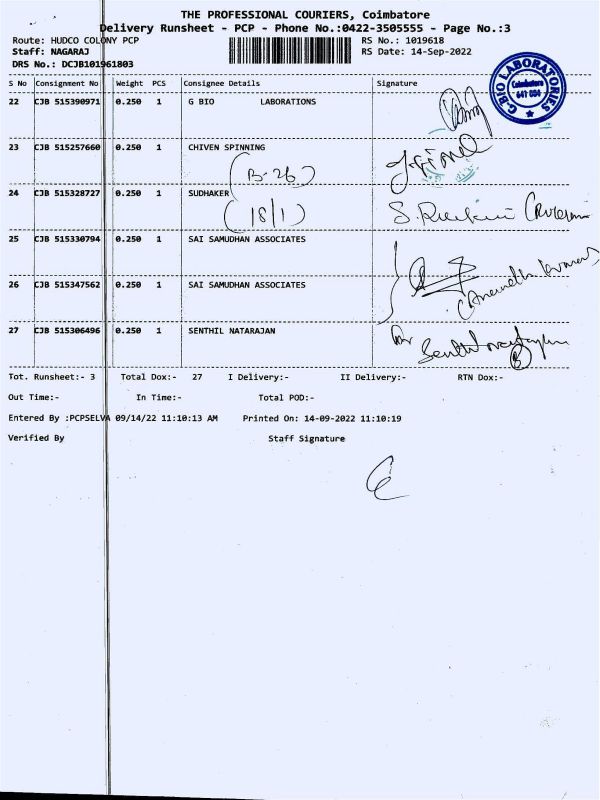 THE PROFESSIONAL COURIERS, Coimbatore
Delivery Runsheet - PCP - Phone No.:0422-3505555 - Page No.:3
Route: HUDCO COLONY PCP RS No.: 1019618
Staff: NAGARAJ RS Date: 14-Sep-2022
DRS No.: DCJB101961803
G-BIO LABORATORIES
Coimbatore
641 004
S No Consignment No Weight PCS Consignee Details Signature
22 CJB 515390971 0.250 1 G BIO LABORATIONS
23 CJB 515257660 0.250 1 CHIVEN SPINNING
(B-26)
24 CJB 515328727 0.250 1 SUDHAKER
(18/1)
25 CJB 515330794 0.250 1 SAI SAMUDHAN ASSOCIATES
26 CJB 515347562 0.250 1 SAI SAMUDHAN ASSOCIATES
27 CJB 515306496 0.250 1 SENTHIL NATARAJAN
Tot. Runsheet:- 3 Total Dox:- 27 I Delivery:- II Delivery:- RTN Dox:-
Out Time:- In Time:- Total POD:-
Entered By :PCPSELVA 09/14/22 11:10:13 AM Printed On: 14-09-2022 11:10:19
Verified By Staff Signature